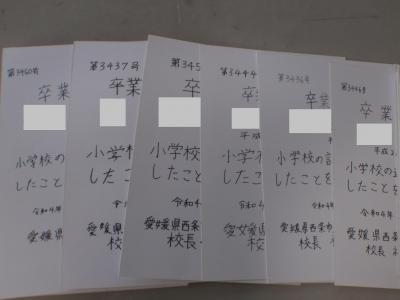 第3460号
卒業
小学校の
したこと
令和4年
愛媛県
校長
第3437号
卒業
小学校
したこと
令
愛媛県
校
第345
卒業
小学校
したこと
令和4
愛媛県西
校長
第3444
卒
平成
小学
したこ
令和4
愛媛県
校長
第3436号
卒業
平
小学校の
したことを
令和4年
愛媛県西条市
校長
第3446号
卒業
平成2
小学校の
したことを
令和4年
愛媛県西条
校長